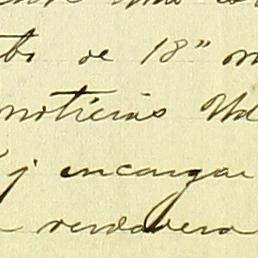 de 18"
noticias Ud
y encargar
verdadera